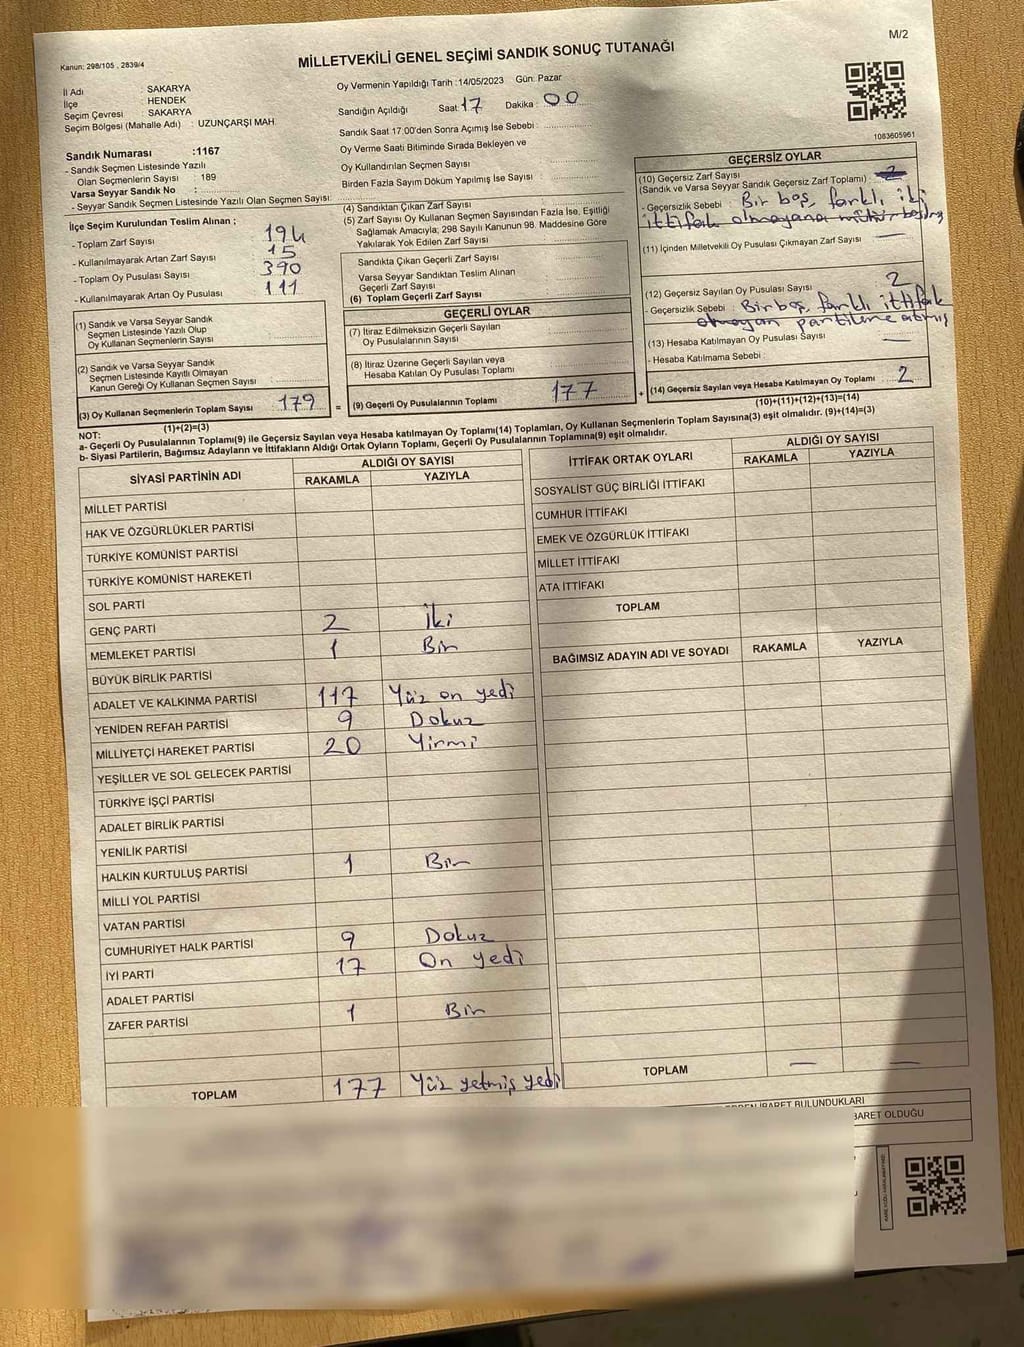 M/2
Kanun: 298/105 , 2839/4
MİLLETVEKİLİ GENEL SEÇİMİ SANDIK SONUÇ TUTANAĞI
İl Adı : SAKARYA
İlçe : HENDEK
Seçim Çevresi : SAKARYA
Seçim Bölgesi (Mahalle Adı) : UZUNÇARŞI MAH.
Sandık Numarası :1167
- Sandık Seçmen Listesinde Yazılı
Olan Seçmenlerin Sayısı : 189
Varsa Seyyar Sandık No :
- Seyyar Sandık Seçmen Listesinde Yazılı Olan Seçmen Sayısı:
Oy Vermenin Yapıldığı Tarih :14/05/2023 Gün: Pazar
Sandığın Açıldığı Saat: 17 Dakika : 00
Sandık Saat 17:00'den Sonra Açımış İse Sebebi :
Oy Verme Saati Bitiminde Sırada Bekleyen ve
Oy Kullandırılan Seçmen Sayısı :
Birden Fazla Sayım Döküm Yapılmış İse Sayısı :
1083605961
İlçe Seçim Kurulundan Teslim Alınan ;
- Toplam Zarf Sayısı 194
- Kullanılmayarak Artan Zarf Sayısı 15
- Toplam Oy Pusulası Sayısı 390
- Kullanılmayarak Artan Oy Pusulası 111
(1) Sandık ve Varsa Seyyar Sandık
Seçmen Listesinde Yazılı Olup
Oy Kullanan Seçmenlerin Sayısı :
(2) Sandık ve Varsa Seyyar Sandık
Seçmen Listesinde Kayıtlı Olmayan
Kanun Gereği Oy Kullanan Seçmen Sayısı :
(3) Oy Kullanan Seçmenlerin Toplam Sayısı : 179
(1)+(2)=(3)
(4) Sandıktan Çıkan Zarf Sayısı :
(5) Zarf Sayısı Oy Kullanan Seçmen Sayısından Fazla İse, Eşitliği
Sağlamak Amacıyla; 298 Sayılı Kanunun 98. Maddesine Göre
Yakılarak Yok Edilen Zarf Sayısı :
Sandıkta Çıkan Geçerli Zarf Sayısı :
Varsa Seyyar Sandıktan Teslim Alınan
Geçerli Zarf Sayısı :
(6) Toplam Geçerli Zarf Sayısı :
GEÇERLİ OYLAR
(7) İtiraz Edilmeksizin Geçerli Sayılan
Oy Pusulalarının Sayısı :
(8) İtiraz Üzerine Geçerli Sayılan veya
Hesaba Katılan Oy Pusulası Toplamı :
= (9) Geçerli Oy Pusulalarının Toplamı : 177
GEÇERSİZ OYLAR
(10) Geçersiz Zarf Sayısı
(Sandık ve Varsa Seyyar Sandık Geçersiz Zarf Toplamı) : 2
- Geçersizlik Sebebi : Bir boş, farklı iki
ittifak olmayana mühür
(11) İçinden Milletvekili Oy Pusulası Çıkmayan Zarf Sayısı : —
(12) Geçersiz Sayılan Oy Pusulası Sayısı : 2
- Geçersizlik Sebebi : Bir boş, farklı ittifak
olmayan partilere atmış
(13) Hesaba Katılmayan Oy Pusulası Sayısı : —
- Hesaba Katılmama Sebebi :
+ (14) Geçersiz Sayılan veya Hesaba Katılmayan Oy Toplamı : 2
(10)+(11)+(12)+(13)=(14)
NOT:
a- Geçerli Oy Pusulalarının Toplamı(9) ile Geçersiz Sayılan veya Hesaba katılmayan Oy Toplamı(14) Toplamları, Oy Kullanan Seçmenlerin Toplam Sayısına(3) eşit olmalıdır. (9)+(14)=(3)
b- Siyasi Partilerin, Bağımsız Adayların ve İttifakların Aldığı Ortak Oyların Toplamı, Geçerli Oy Pusulalarının Toplamına(9) eşit olmalıdır.
SİYASİ PARTİNİN ADI ALDIĞI OY SAYISI
RAKAMLA YAZIYLA
MİLLET PARTİSİ
HAK VE ÖZGÜRLÜKLER PARTİSİ
TÜRKİYE KOMÜNİST PARTİSİ
TÜRKİYE KOMÜNİST HAREKETİ
SOL PARTİ
GENÇ PARTİ 2 İki
MEMLEKET PARTİSİ 1 Bir
BÜYÜK BİRLİK PARTİSİ
ADALET VE KALKINMA PARTİSİ 117 Yüz on yedi
YENİDEN REFAH PARTİSİ 9 Dokuz
MİLLİYETÇİ HAREKET PARTİSİ 20 Yirmi
YEŞİLLER VE SOL GELECEK PARTİSİ
TÜRKİYE İŞÇİ PARTİSİ
ADALET BİRLİK PARTİSİ
YENİLİK PARTİSİ
HALKIN KURTULUŞ PARTİSİ 1 Bir
MİLLİ YOL PARTİSİ
VATAN PARTİSİ
CUMHURİYET HALK PARTİSİ 9 Dokuz
İYİ PARTİ 17 On yedi
ADALET PARTİSİ
ZAFER PARTİSİ 1 Bir
TOPLAM 177 Yüz yetmiş yedi
İTTİFAK ORTAK OYLARI ALDIĞI OY SAYISI
RAKAMLA YAZIYLA
SOSYALİST GÜÇ BİRLİĞİ İTTİFAKI
CUMHUR İTTİFAKI
EMEK VE ÖZGÜRLÜK İTTİFAKI
MİLLET İTTİFAKI
ATA İTTİFAKI
TOPLAM
BAĞIMSIZ ADAYIN ADI VE SOYADI RAKAMLA YAZIYLA
TOPLAM — —
İBARET BULUNDUKLARI
BARET OLDUĞU